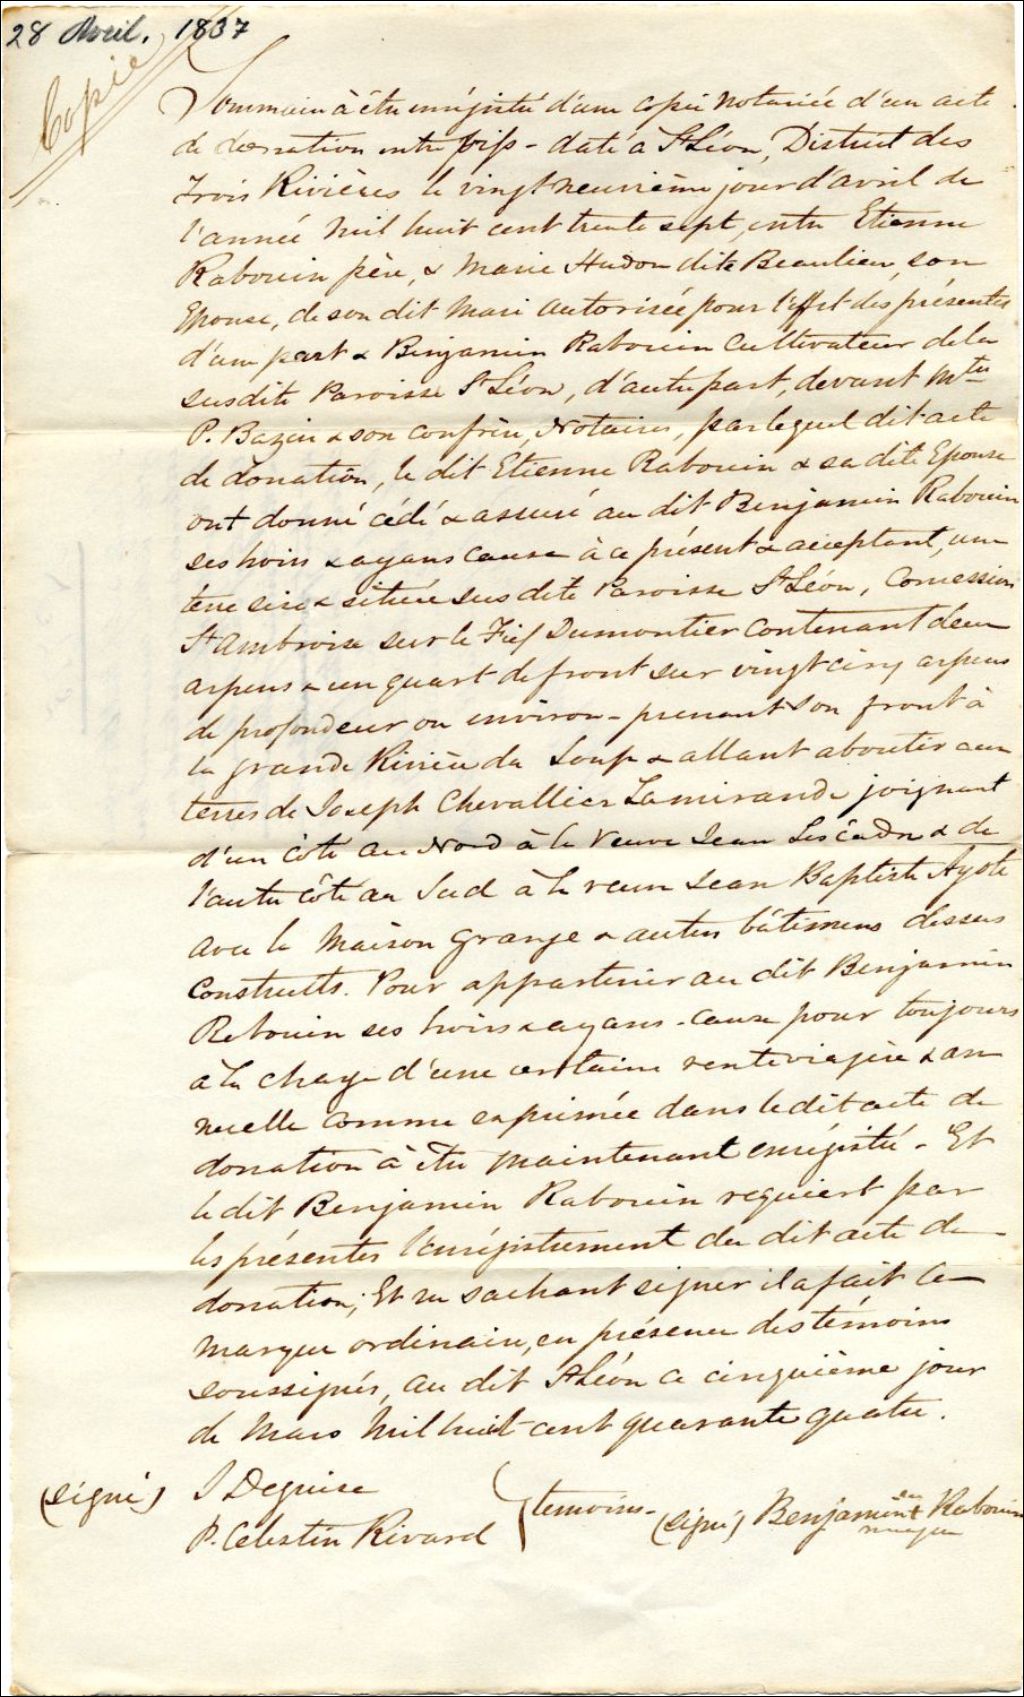 28 Avril. 1837
Copie
Sommain à être enrégistré d'une copie notariée d'un acte
de donation entre vifs - daté à St Léon, District des
Trois Rivières le vingt neuvième jour d'avril de
l'année mil huit cent trente sept, entre Etienne
Rabouin père, & Marie Hudon dite Beaulieu, son
Epouse, de son dit Mari autorisée pour l'effet des présentes
d'une part & Benjamin Rabouin Cultivateur de la
susdite Paroisse St Léon, d'autre part, devant Mtre
P. Bazin & son confrère, Notaires, par lequel dit acte
de donation, le dit Etienne Rabouin & sa dite Epouse
ont donné cédé & assuré au dit Benjamin Rabouin
ses hoirs & ayans cause à ce présent & acceptant, une
terre sise & située susdite Paroisse St Léon, Concession
St Ambroise sur le Fief Dumontier contenant deux
arpens & un quart de front sur vingt cinq arpens
de profondeur ou environ - prenant son front à
la grande Rivière du Loup & allant aboutir aux
terres de Joseph Chevallier Lamirande joignant
d'un côté au Nord à la Veuve Jean Lescadre & de
l'autre côté au Sud à la veuve Jean Baptiste Ayotte
avec la Maison Grange & autres bâtimens dessus
Construits. Pour appartenir au dit Benjamin
Rebouin ses hoirs & ayans - cause pour toujours
à la charge d'une certaine rente viagère & an
nuelle comme exprimée dans le dit acte de
donation à être maintenant enrégistré - Et
le dit Benjamin Rabouin requiert par
les présentes l'enrégistrement du dit acte de
donation; Et ne sachant signer il a fait sa
marque ordinaire, en présence des témoins
soussignés, au dit St Léon ce cinquième jour
de Mars Mil huit cent quarante quatre.
(signé) J Deguise
P. Celestin Rivard
témoins -
(signé) Benjamin + Rabouin
sa
marque